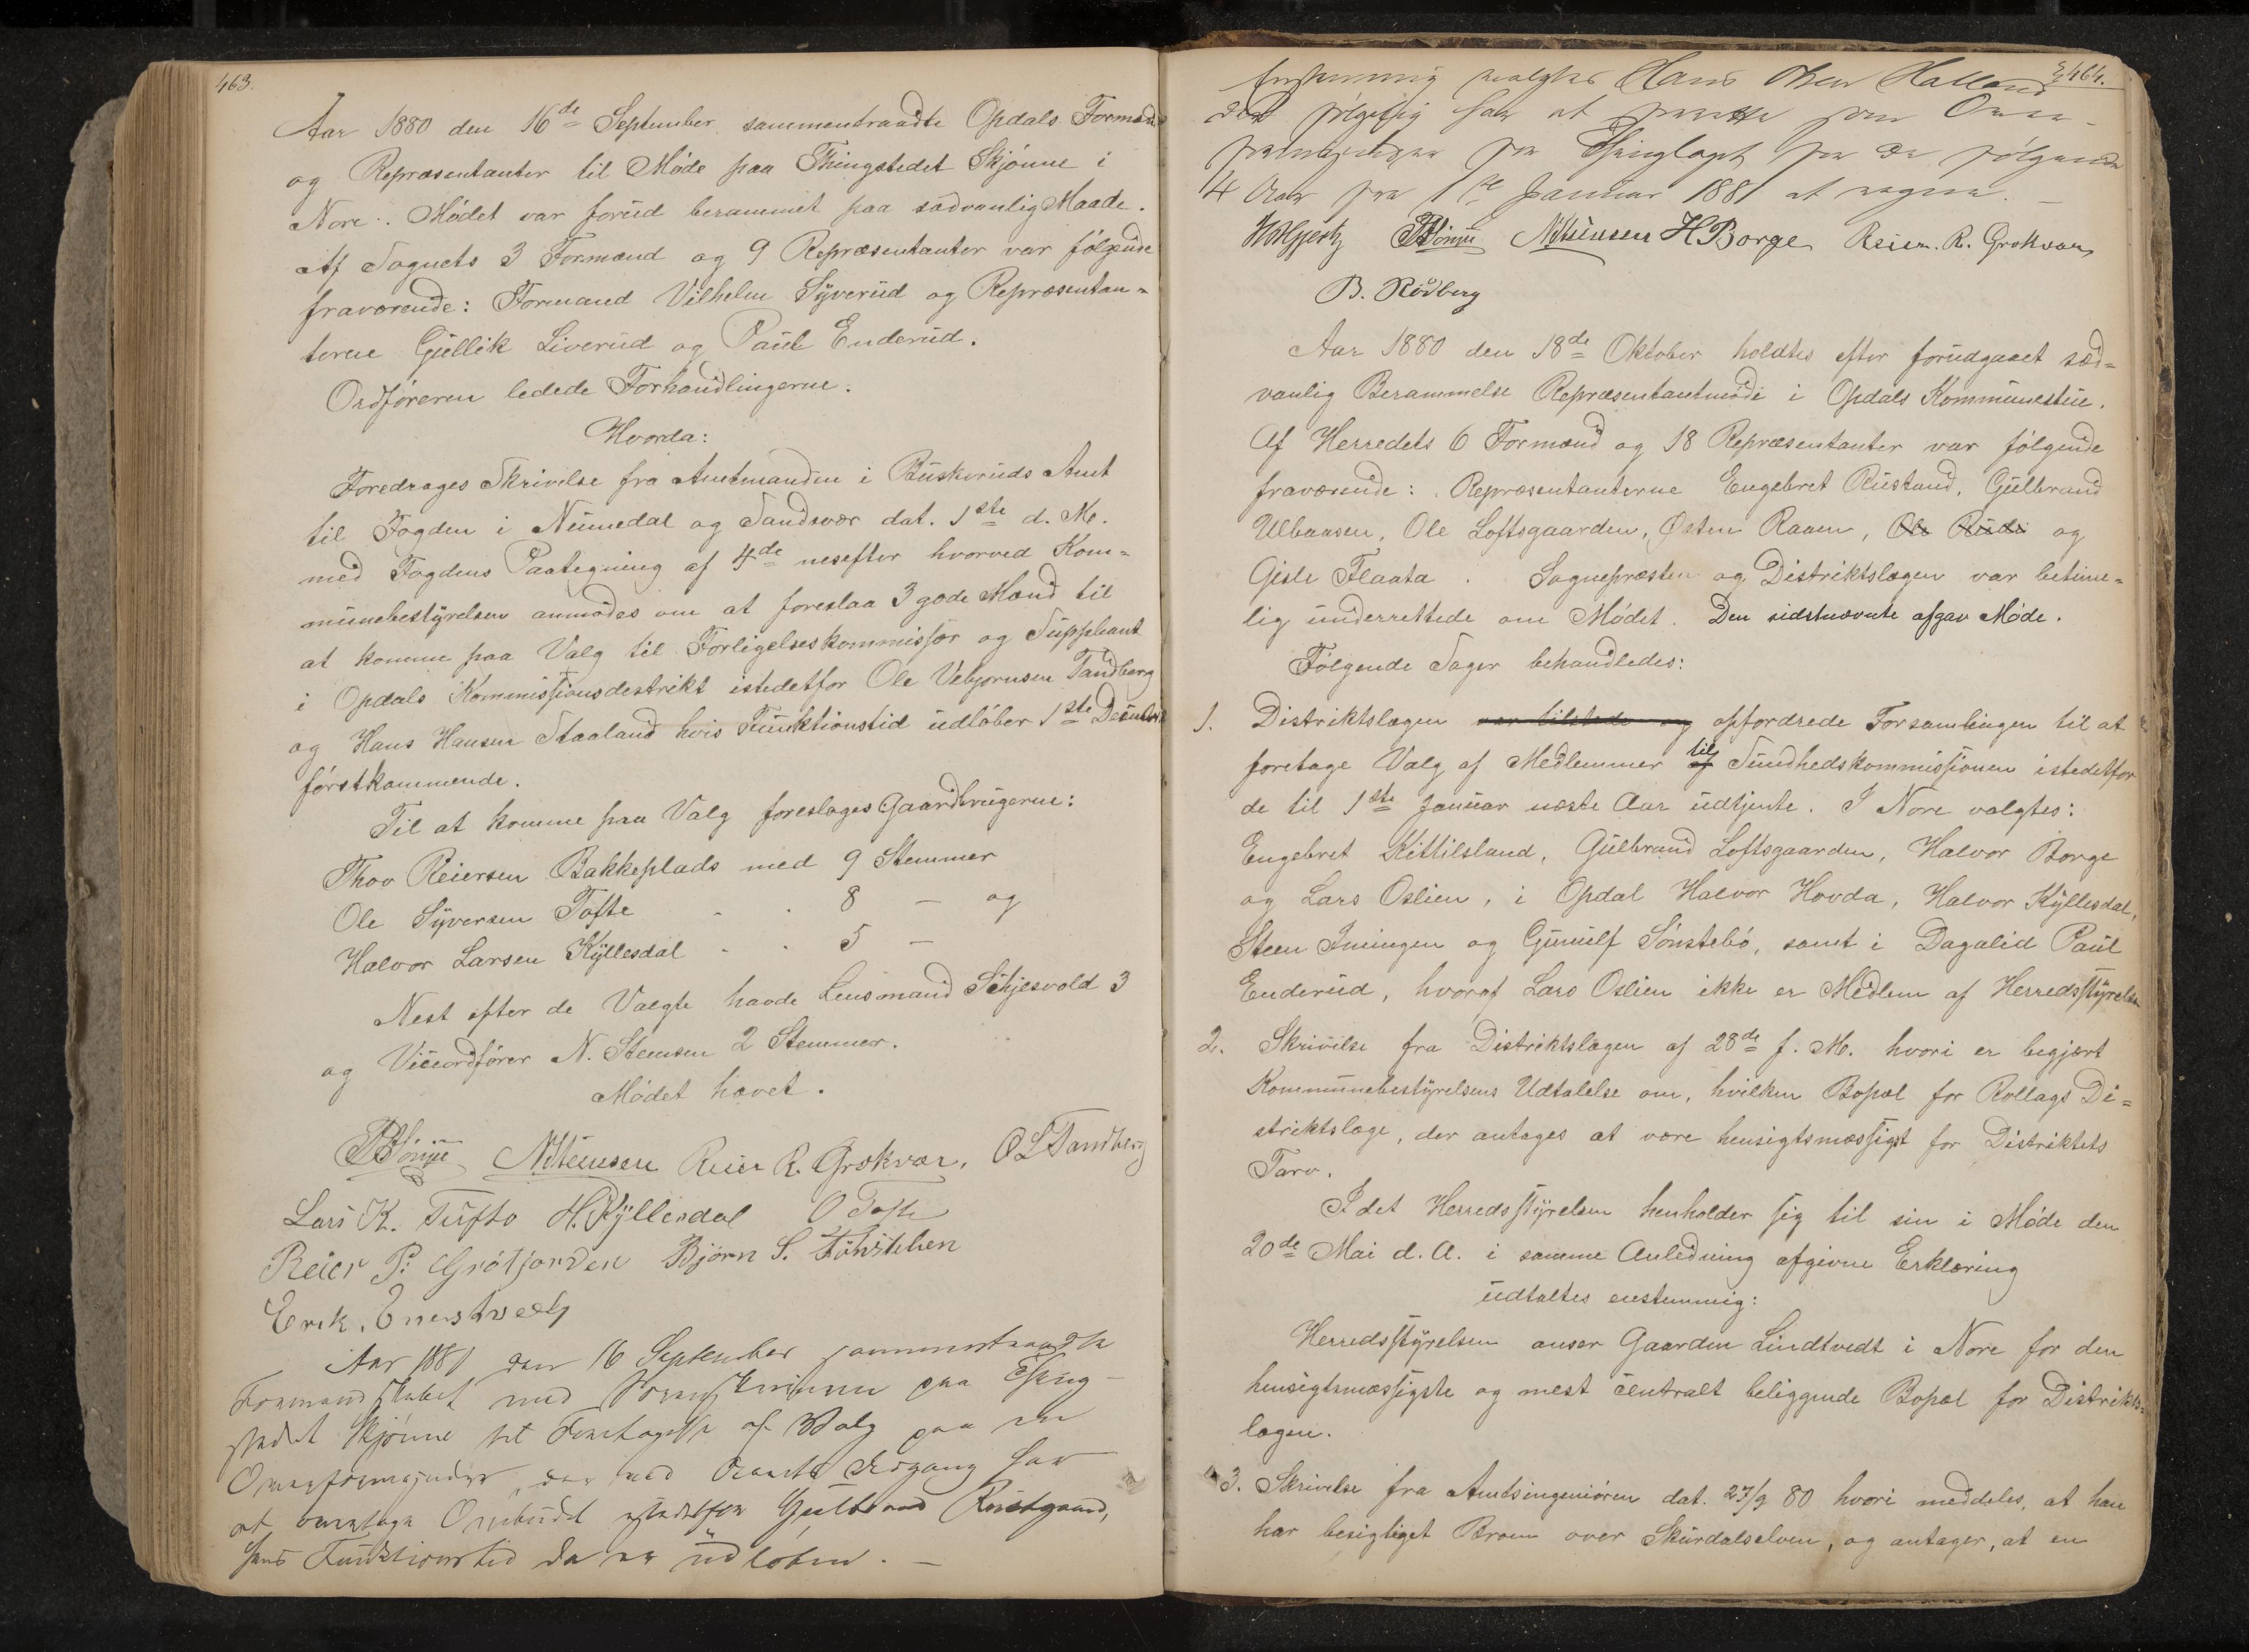 463.
Aar 1880 den 16de September sammentraadte Opdals Formænd
og Repræsentanter til Møde paa Thingstedet Skjønne i
Nore. Mødet var forud berammet paa sædvanlig Maade.
Af Sognets 3 Formænd og 9 Repræsentanter var følgende
fraværende: Formand Vilhelm Syverud og Repræsentan-
terne Gullik Liverud og Paul Enderud.
Ordføreren ledede Forhandlingerne.
Hvorda:
Foredrages Skrivelse fra Amtmanden i Buskeruds Amt
til Fogden i Numedal og Sandsvær dat. 1ste d. M.
med Fogdens Paategning af 4de næsefter hvorved Kom-
munebestyrelsen anmodes om at foreslaa 3 gode Mænd til
at komme paa Valg til Forligelseskommissær og Suppleant
i Opdals Kommissionsdestrikt istedetfor Ole Vebjørnsen Tandberg
og Hans Hansen Staaland hvis Funktionstid udløber 1ste December
førstkommende.
Til at komme paa Valg foreslages Gaardbrugerne:
Thov Reiersen Bakkeplads med 9 Stemmer
Ole Syversen Tofte - - 8 — og
Halvor Larsen Kyllesdal - - 5 —
Nest efter de Valgte havde Lensmand Schjesvold 3
og Viceordfører N. Steensen 2 Stemmer.
Mødet hævet.
NSteensen Reier R. Grøkvær, OLTandberg
Lars K. Tufto H. Kyllesdal O Tofte
Reier P: Grøtjorden Bjørn S.
Erik.
Aar 1880 den 16 September sammentraadte
Formandskabet med paa Thing-
stedet Skjønne til Foretagelse af Valg paa en
der ved Aarets Udgang har
at overtage Ombudet istedetfor Gulbrand Rustgaard,
hans Funktionstid da er udløben. —
464.
Enstemmig valgtes Hans Halland
der følgelig har at som Over-
for Thinglaget for de følgende
4 Aar fra 1ste Januar 1881 at regne. —
NSteensen HBorge Reier. R. Grøkvær
B. Rødberg
Aar 1880 den 18de Oktober holdtes efter forudgaaet sæd-
vanlig Berammelse Repræsentantmøde i Opdals Kommunestue.
Af Herredets 6 Formænd og 18 Repræsentanter var følgende
fraværende: Repræsentanterne Engebret Rustand, Gulbrand
Ulbaasen, Ole Loftsgaarden, Østen Raaen, Ole Rudi og
Gisle Flaata. Sognepræsten og Distriktslægen var betime-
lig underrettede om Mødet. Den sidstnævnte afgav Møde.
Følgende Sager behandledes:
1. Distriktslægen var tilstede og opfordrede Forsamlingen til at
foretage Valg af Medlemmer af til Sundhedskommissionen istedetfor
de til 1ste Januar næste Aar udtjente. I Nore valgtes:
Engebret Kittilsland, Gulbrand Loftsgaarden, Halvor Borge
og Lars Oslien, i Opdal Halvor Hovda, Halvor Kyllesdal,
Steen Imingen og Gunulf Sønstebø, samt i Dagalid Paul
Enderud, hvoraf Lars Oslien ikke er Medlem af Herredsstyrelsen
2. Skrivelse fra Distriktslægen af 28de f. M. hvori er begjært
Kommunebestyrelsens Udtalelse om, hvilken Bopæl for Rollags Di-
striktslæge, der antages at være hensigtsmæssigst for Distriktets
Tarv.
Idet Herredsstyrelsen henholder sig til sin i Møde den
20de Mai d. A. i samme Anledning afgivne Erklæring
udtaltes enstemmig:
Herredsstyrelsen anser Gaarden Lindtvedt i Nore for den
hensigtsmæssigste og mest centralt beliggende Bopæl for Distrikts-
lægen.
3. Skrivelse fra Amtsingeniøren dat. 27/9 80 hvori meddeles, at han
har besigtiget Broen over Skurdalselven, og antager, at en